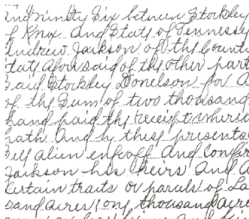 and ninety Six between Stockley
of Knox And State of Tennessey
Andrew Jackson of the County
State Aforesaid of the other part
Said Stockley Donelson for A
of the Sum of two thousand
hand paid the receipt whereof
hath And by these presents
Sell alien enfeoff And Confirm
Jackson his heirs And A
Certain tracts or parcels of La
sand acres (one thousand acre